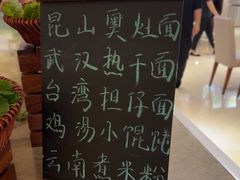 昆山奥灶面
武汉热干面
台湾担仔面
鸡汤小馄饨
云南煮米粉